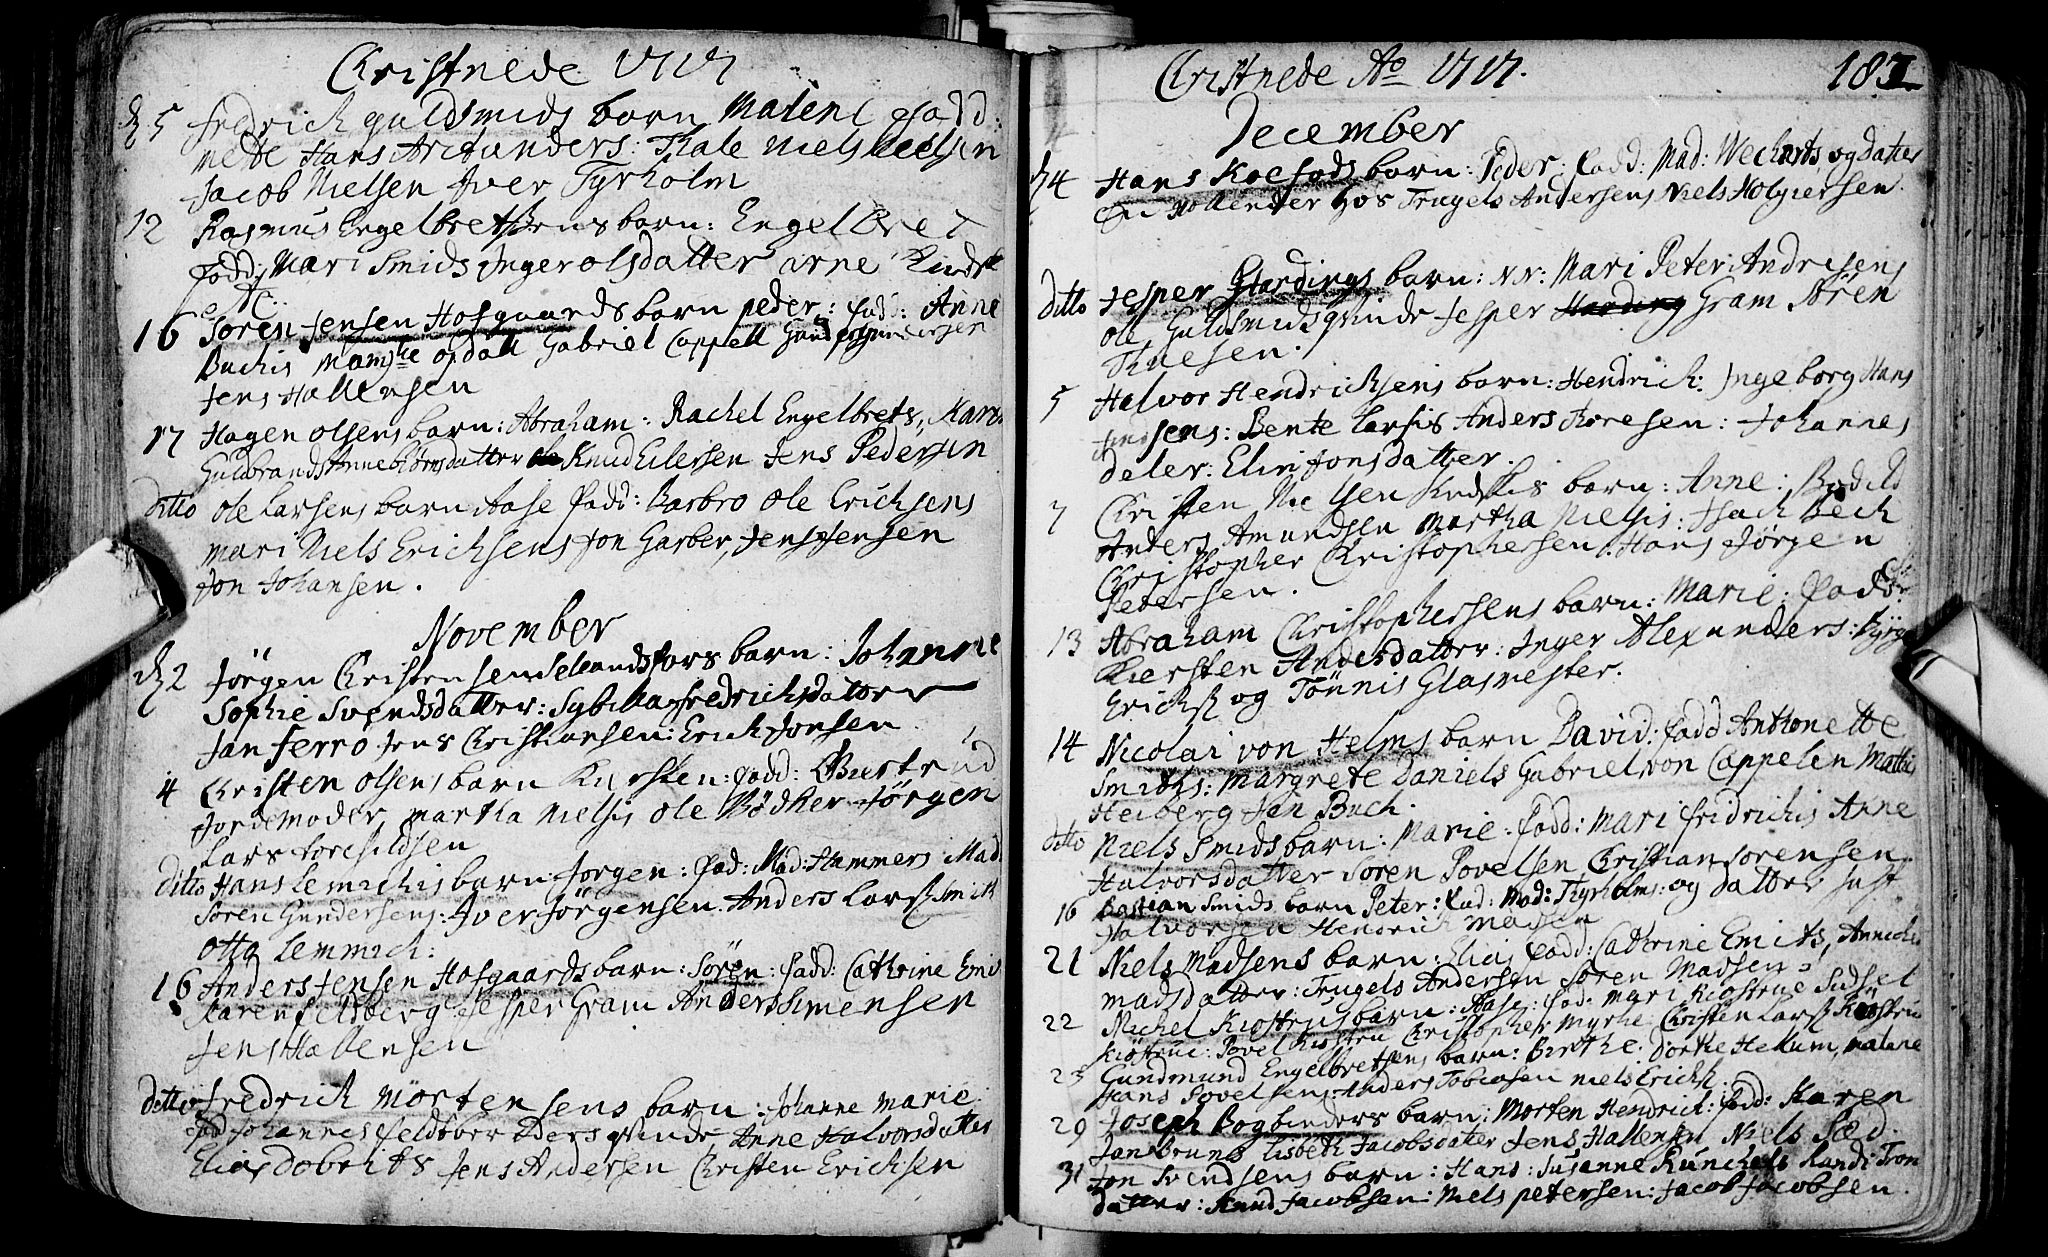 Christnede 1717
d 5 fredrich guldsmids barn Malene fadd:
mette Hans Thale Niels
Jacob Nielsen Iver Tyrholm
12 Rasmus Engelbretsens barn: Engelbret
fadd: Mari Smids Inger olsdatter arne
16 Søren Jensen Hofgaards barn peder: fadd: Anne
Buchis opdall Gabriel Cappell
Jens Hallensen
17 Hagen olsens barn: Abraham: Rachel Engelbrets, Karen
Guldbrands Anne datter Knud Eilersen Jens Pedersen
ditto ole Larsens barn Aase fadd: Barbro ole Erichsens
mari Niels Erichsens Jon Garber, Jens Jensen
Jon Johansen.
November
d 2 Jørgen Christensen barn: Johanne
Sophie Svendsdatter: Sybilla fredrichsdatter
Jan ferro Jens Christiansen: Erich Jonsen
4 Christen olsens barn Kiersten: fadd:
Jordemoder, martha Nielsis ole Bødker Jørgen
Lars
ditto Hans Lemichis barn Jørgen: fad: Mad: Hammers Mad
Søren Gundersens: Iver Jørgensen. Anders Larss Smidt
otto Lemmich:
16 Anders Jensen Hofgaards barn: Søren: fadd: Cathrine Emits
Karen feldberg Jesper Gram Anders Simensen
Jens Hallensen
ditto fredrich mortensens barn: Johanne marie
fad Johannes qvinde Anne Halvorsdatter
Elias dobrits Jens Andersen Christen Erichsen
Christnede Ao 1717. 181
December
d 4 Hans Koefods barn: Peder: fadd: Mad: Wecharts og datter
hos Trugels Andersens Niels Holgiersen.
ditto Jesper Hardings barn: N.N: Mari Peter Andersens
ole Guldsmids qvinde Jesper Gram Søren
Thuesen.
5 Halvor Hendrichsens barn: Hendrich: Ingeborg Hans
sens: Bente Larsis Anders Thoresen: Johannes
deler: Elin Jonsdatter.
7 Christen Nielsen barn: Anne: Bodild
Anders Amundsen Martha Nielsis: Isach Bech
Christopher Christophersen: Hans Jørgen
Petersen.
13 Abraham Christophersens barn: Marie: fadd:
Kiersten Andersdatter: Inger Alexanders: Byrge
Erichss og Tønnis Glasmester.
14 Nicolai von Helms barn David: fadd Anthonette
Smiths: Margrete Daniels Gabriel von Cappelen Mathis
Heiberg Jan Buch.
ditto Niels Smids barn: Marie: fadd: Mari fridrichis Anne
Halvorsdatter Søren Povelsen Christian Sørensen.
16 bastian Smids barn Peter: fad: Mad: Thyrholms: og datter Just
Halvorsen Hendrich Madsen
21 Niels Madsens barn: Elias fadd: Cathrine Emits, Anniche
madsdatter: Trugels Andersen Søren Madsen:
22 Michel Kiostruis barn: Aase: fad: mari Kiostrue Sidsel
Kiøstrue: Povel Christopher Myrhe Christen Larss Kiøstrue
23 Gundmund Engelbretsens barn: Birthe: Dorthe Hekum, malene
Hans Povelsens: Anders Tobiasen Niels Erichss.
29 Joseph Bogbinders barn: Morten Hendrich: fadd: Karen
Jan Bruns Lisbeth Jacobsdatter Jens Hallensen Niels Sæd.
31 Jon Svendsens barn: Hans: Susanne Randi Tron
datter: Knud Jacobsen: Niels petersen: Jacob Jacobsen.